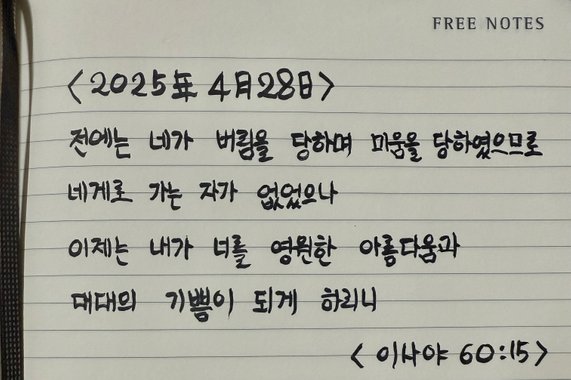 FREE NOTES
<2025年 4月28日>
전에는 네가 버림을 당하며 미움을 당하였으므로
네게로 가는 자가 없었으나
이제는 내가 너를 영원한 아름다움과
대대의 기쁨이 되게 하리니
<이사야 60:15>